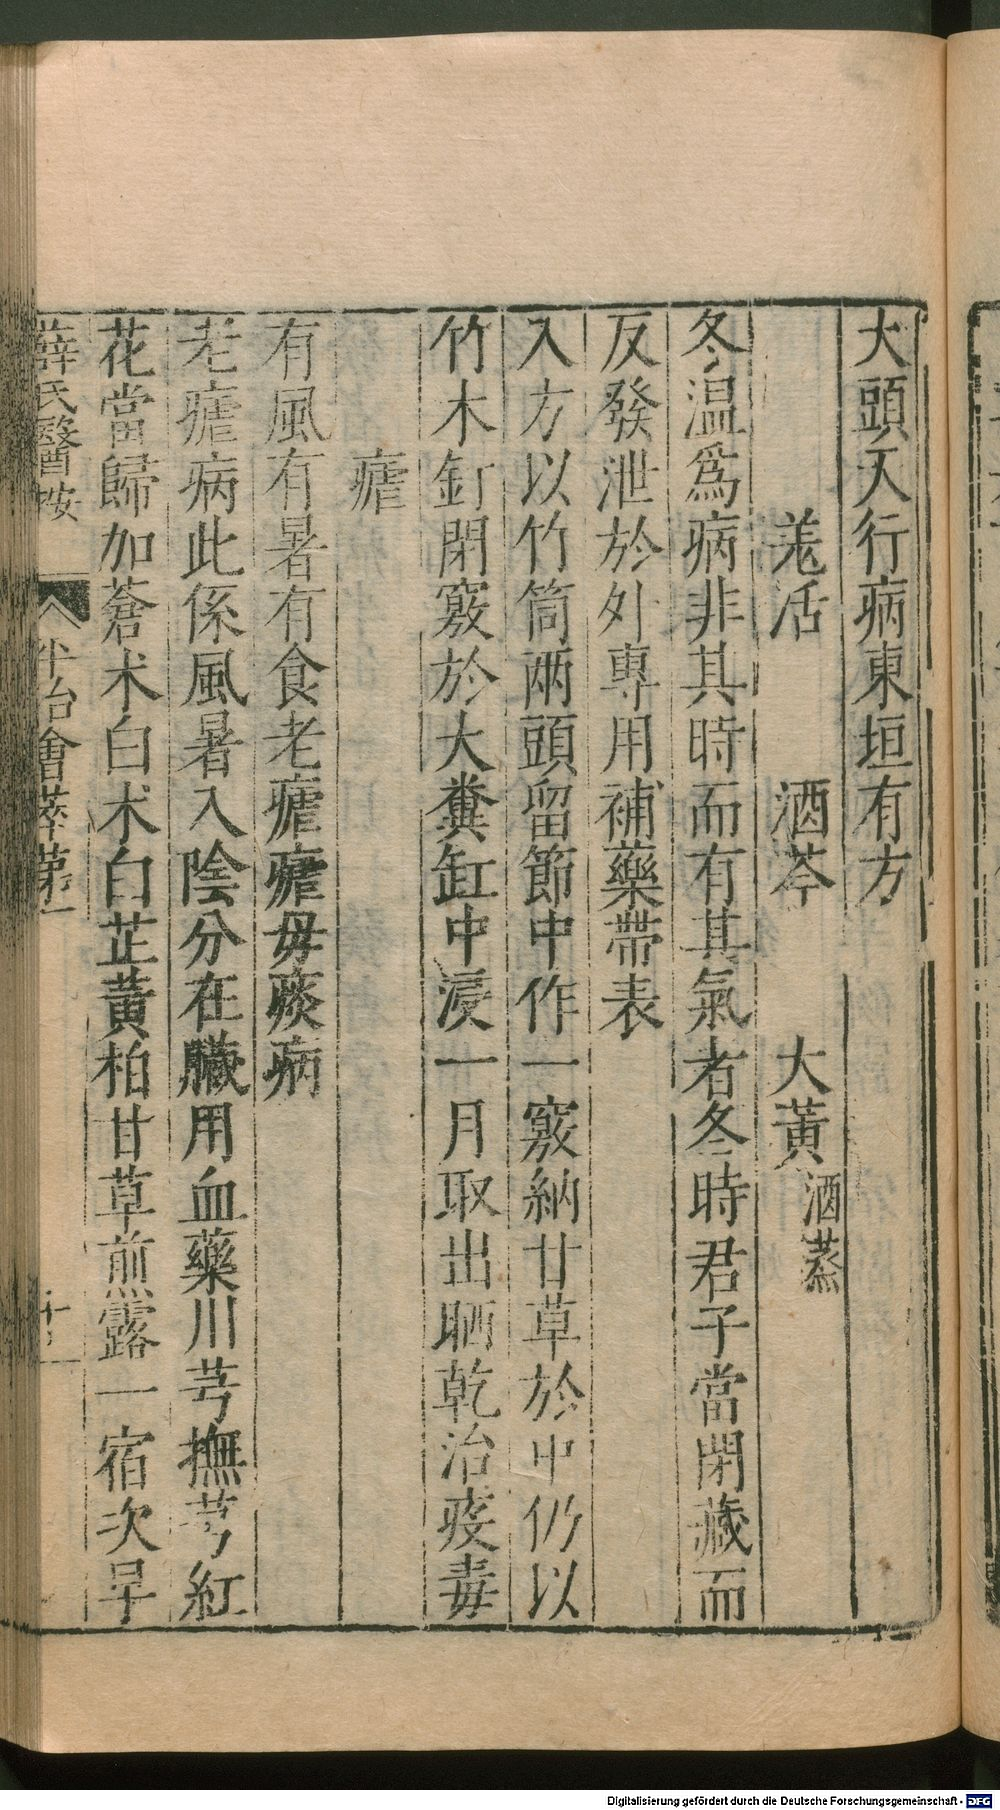 大頭天行病東垣有方
羗活　酒芩　大黃酒蒸
冬温爲病非其時而有其氣者冬時君子當閉藏而
反發泄於外專用補藥帶表
入方以竹筒兩頭留節中作一竅納甘草於中仍以
竹木釘閉竅於大糞缸中浸一月取出晒乾治疫毒
瘧
有風有暑有食老瘧瘧母痰病
老瘧病此係風暑入陰分在臟用血藥川芎撫芎紅
花當歸加蒼术白术白芷黃柏甘草煎露一宿次早
薛氏醫按
平治會萃第一
Digitalisierung gefördert durch die Deutsche Forschungsgemeinschaft - DFG